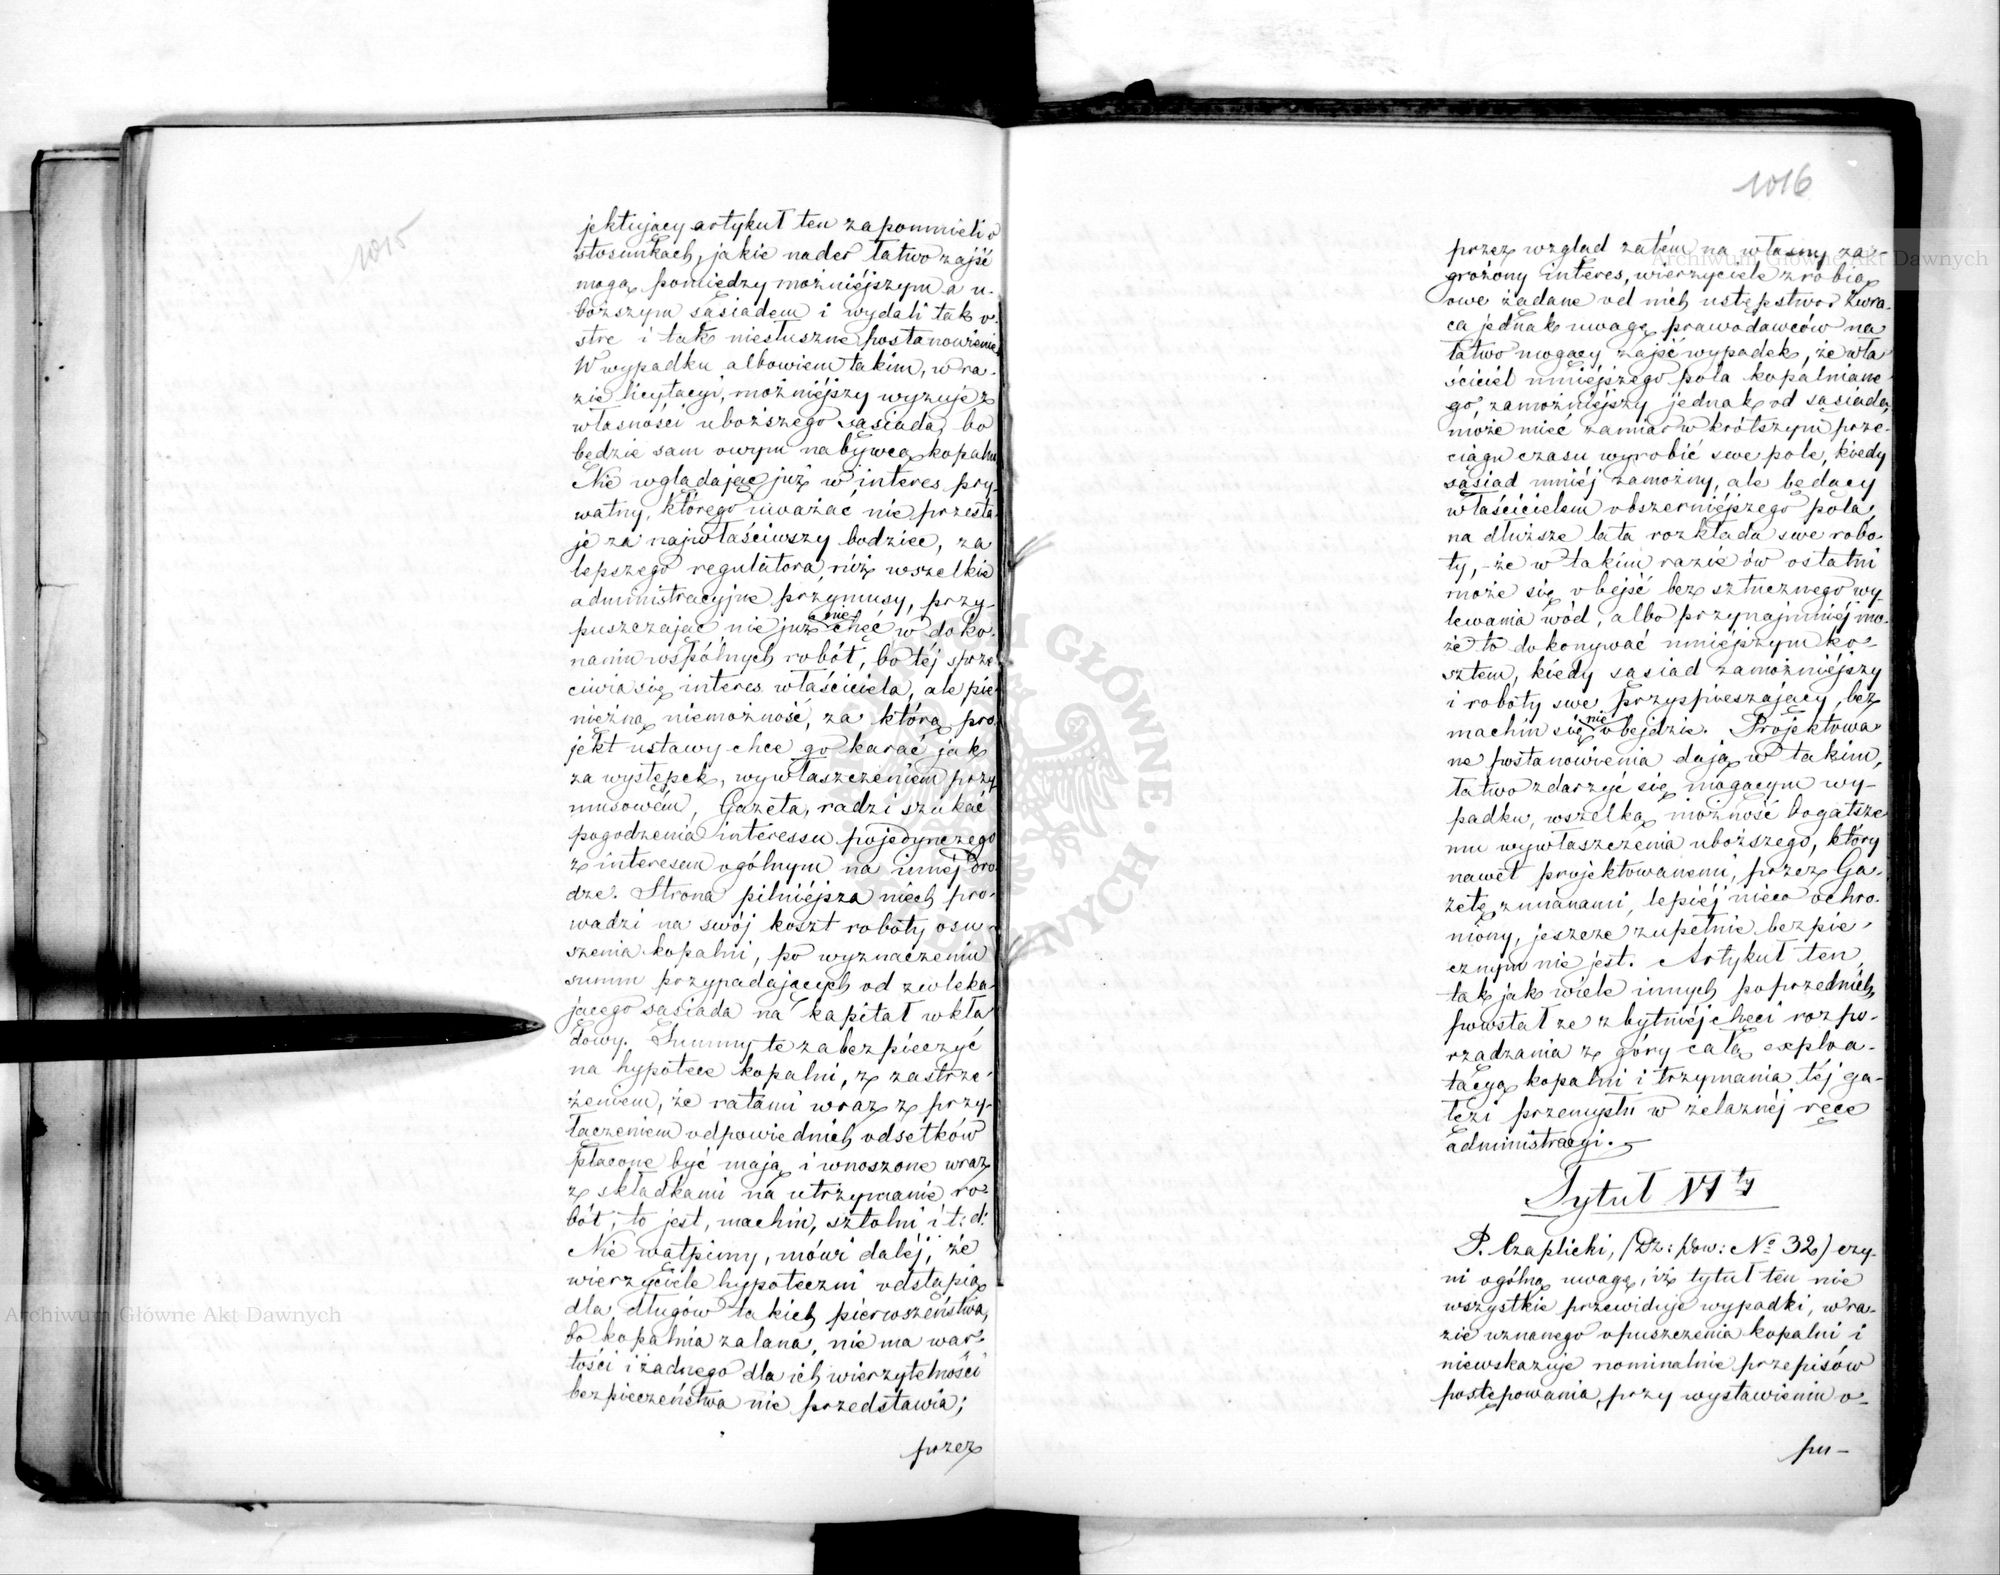 1015
jektujący artykuł ten zapomnieli o
stosunkach, jakie nader łatwo zajść
mogą pomiędzy możniéjszym a u-
boższym sąsiadem i wydali tak o-
stre i tak niesłuszne postanowienie
W wypadku albowiem takim, w ra-
zie licytacyi, możniéjszy wyzuje z
własności uboższego sąsiada, bo
będzie sam owym nabywcą kopalni
Nie wglądając już w interes pry-
watny, którego uważać nie przesta-
je za najwłaściwszy bodziec, za
lepszego regulatora, niż wszelkie
administracyjne przymusy, przy-
puszczając nie już niechęć w doko-
naniu wspólnych robót, bo téj sprze-
ciwia się interes właściciela, ale pie-
niężną niemożność, za którą pro-
jekt ustawy chce go karać jak
za występek, wywłaszczeniem przy-
musowém, Gazeta, radzi szukać
pogodzenia interessu pojedynczego
z interesem ogólnym na innéj dro-
dze. Strona pilniéjsza niech pro-
wadzi na swój koszt roboty osu-
szenia kopalni, po wyznaczeniu
summ przypadających od zwleka-
jącego sąsiada na kapitał wkła-
dowy. Summy te zabezpieczyć
na hypotece kopalni, z zastrze-
żeniem, że ratami wraz z przy-
łączeniem odpowiednich odsetków
płacone być mają i wnoszone wraz
z składkami na utrzymanie ro-
bót, to jest, machin, sztolni i t: d:
Nie wątpimy, mówi daléj, że
wierzyciele hypoteczni odstąpią
dla długów takich pierwszeństwa,
bo kopalnia zalana, nie ma war-
tości i żadnego dla ich wierzytelności
bezpieczeństwa nie przedstawia;
przez
1016
przez wzgląd zatém na własny za-
grożony interes, wierzyciele zrobią
owe żądane od nich ustępstwo. Zwra-
ca jednak uwagę prawodawców na
łatwo mogący zajść wypadek, że wła-
ściciel mniejszego pola kopalniane-
go, zamożniéjszy jednak od sąsiada,
może mieć zamiar w krótszym prze-
ciągu czasu wyrobić swe pole, kiedy
sąsiad mniéj zamożny, ale będący
właścicielem obszerniéjszego pola,
na dłuższe lata rozkłada swe robo-
ty, - że w takim razie ów ostatni
może się obejść bez sztucznego wy-
lewania wód, albo przynajmniéj mo-
że to dokonywać mniejszym ko-
sztem, kiedy sąsiad zamożniéjszy
i roboty swe przyspieszający, bez
machin się nie obejdzie. Projektowa-
ne postanowienia dają w takim,
łatwo zdarzyć się mogącym wy-
padku, wszelką możność bogatsze-
mu wywłaszczenia uboższego, który
nawet projektowanemi, przez Ga-
zetę, zmianami, lepiéj nieco ochro-
niony, jeszcze zupełnie bezpie-
cznym nie jest. Artykuł ten,
tak jak wiele innych poprzednich,
powstał ze zbytniéj chęci rozpo-
rządzania z góry całą exploa-
tacyą kopalni i trzymania téj ga-
łęzi przemysłu w żelaznéj ręce
administracyi.
Tytuł VI ty
P. Czaplicki, (Dz: Pow: No 32) czy-
ni ogólną uwagę, iż tytuł ten nie
wszystkie przewiduje wypadki, w ra-
zie uznanego opuszczenia kopalni i
niewskazuje nominalnie przepisów
postępowania, przy wystawieniu o-
pu-
Archiwum Główne Akt Dawnych
Archiwum Główne Akt Dawnych